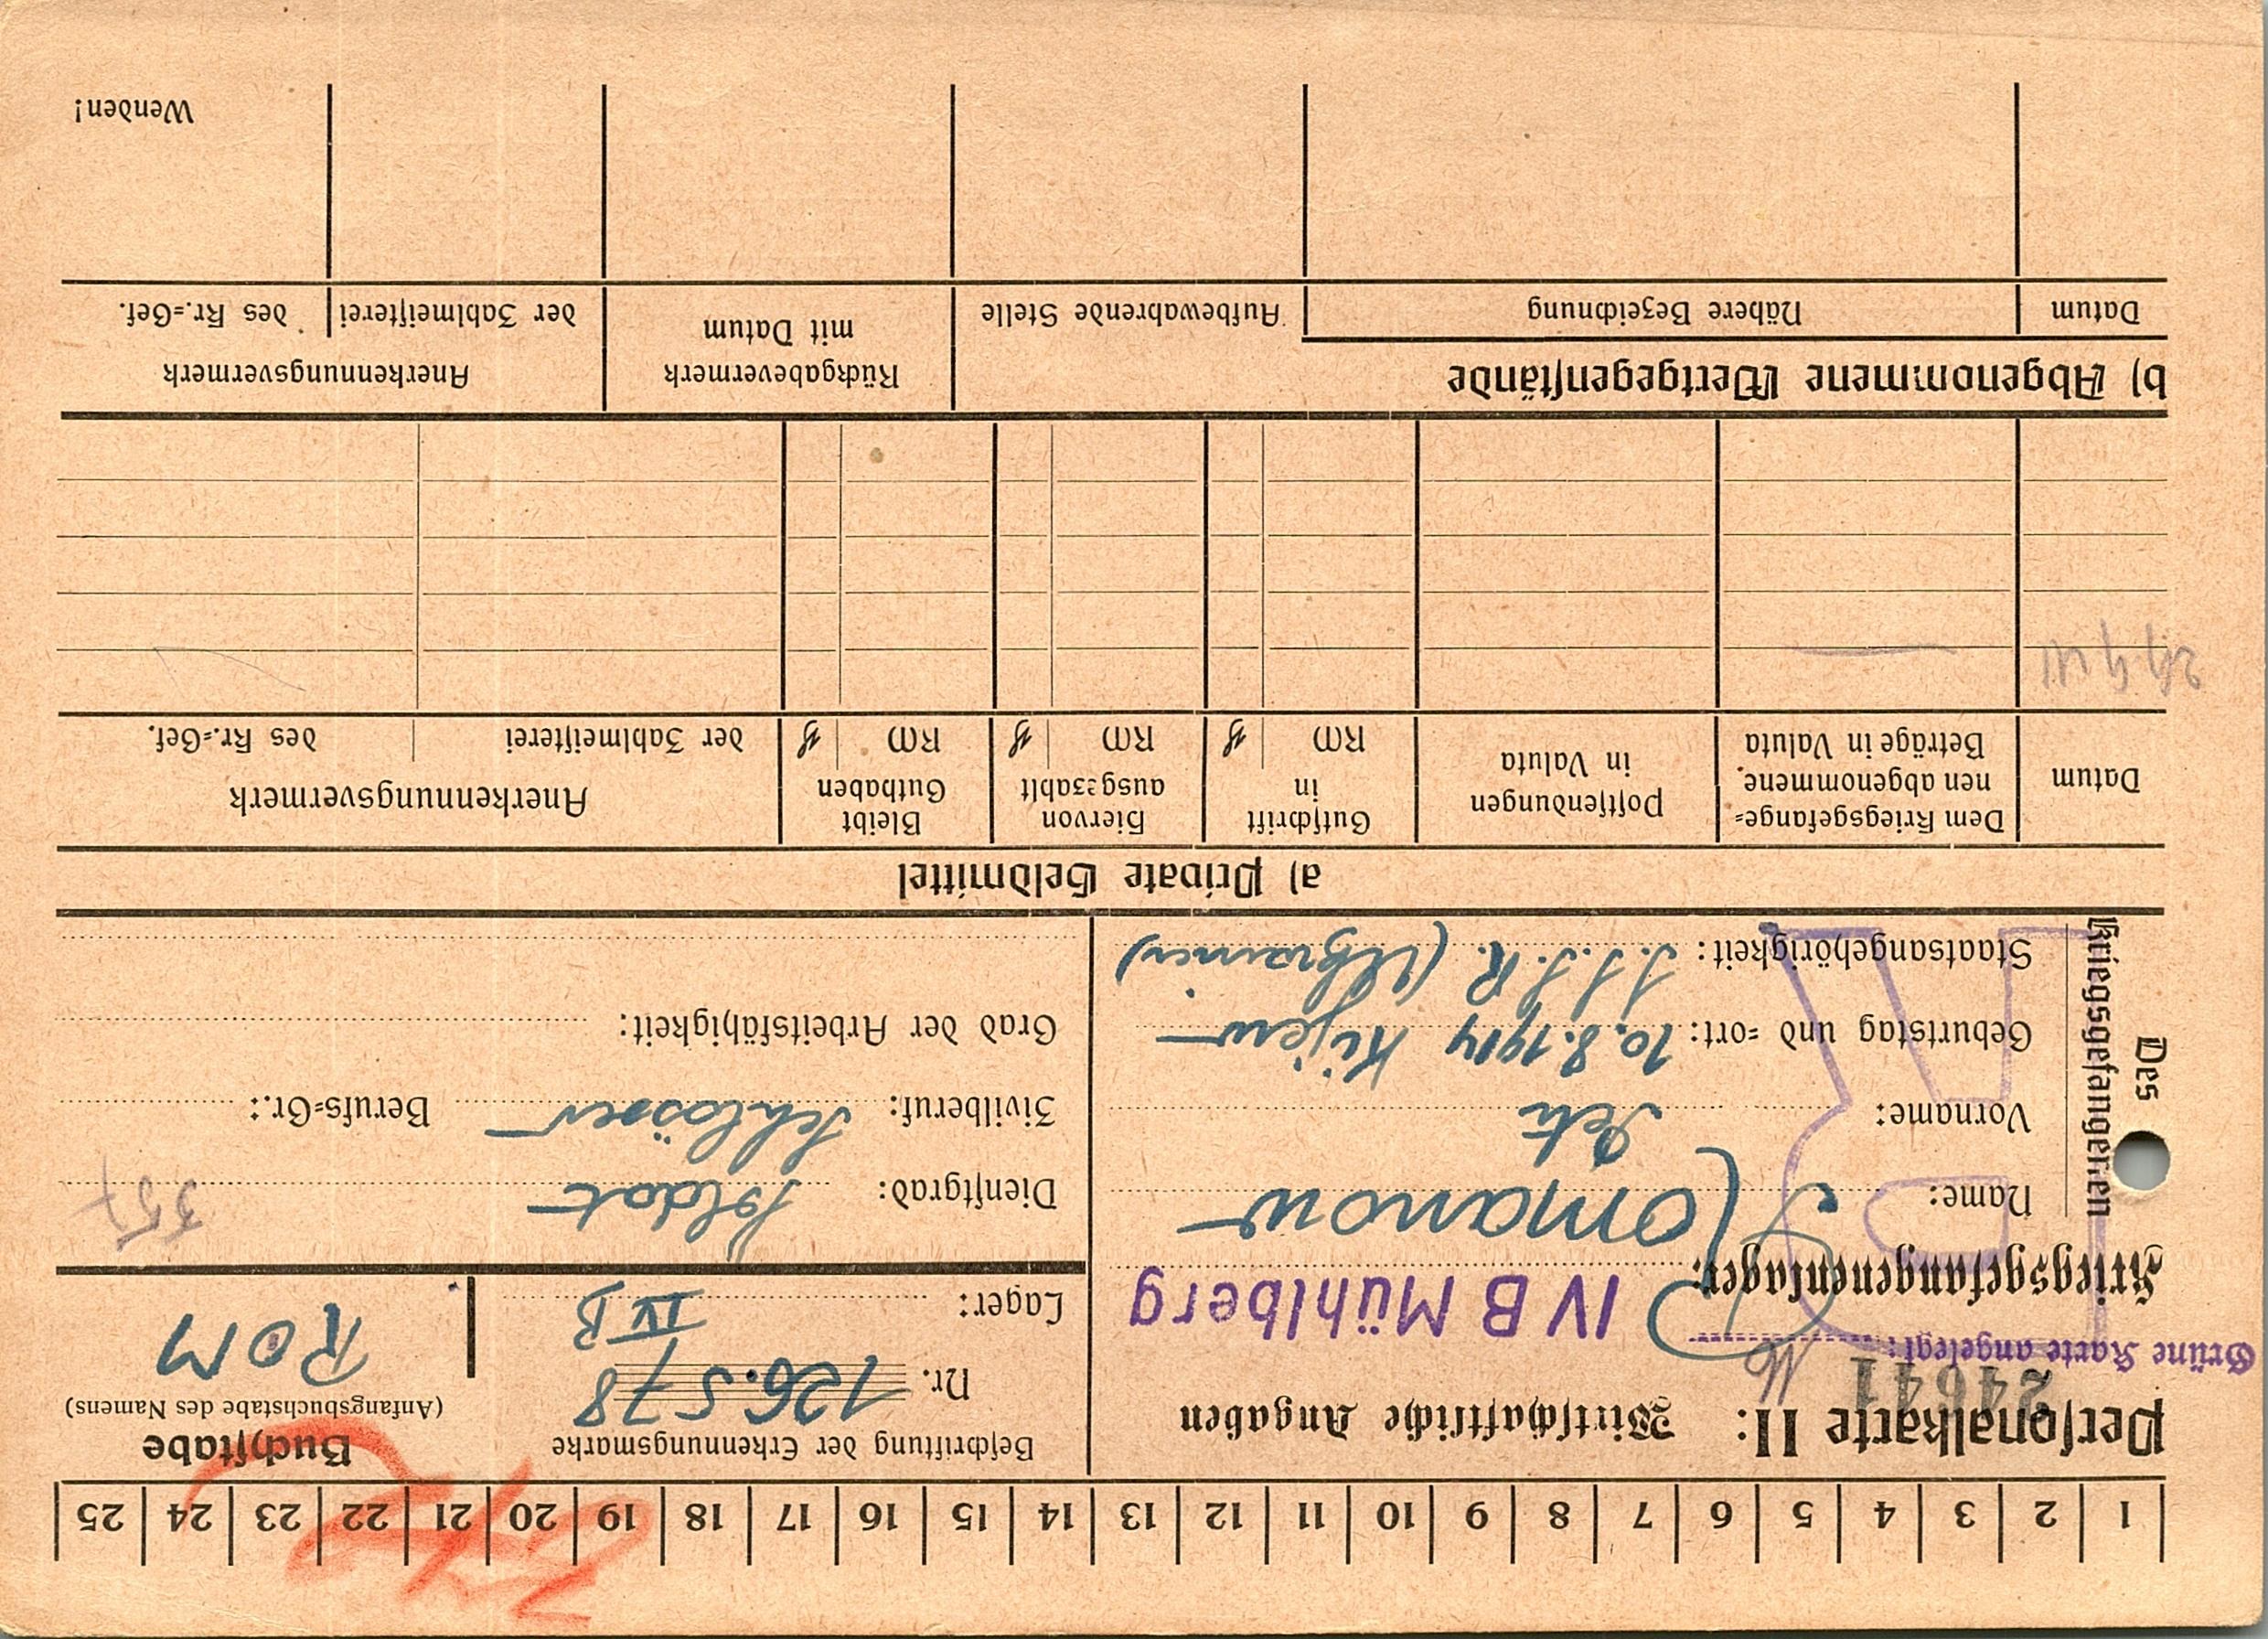 1 2 3 4 5 6 7 8 9 10 11 12 13 14 15 16 17 18 19 20 21 22 23 24 25
Personalkarte II: Wirtschaftliche Angaben
24641
Grüne Karte angelegt:
Kriegsgefangenenlager: IV B Mühlberg
Beschriftung der Erkennungsmarke
Nr. 126.578
Lager: IV B
Buchstabe
(Anfangsbuchstabe des Namens)
ROM
Des Kriegsgefangenen
Name: Romanow
Vorname:
Geburtstag und =ort: 10.8.1914 Kijew
Staatsangehörigkeit: S.S.S.R. (Ukrainer)
Dienstgrad: Soldat
357
Zivilberuf: Schlosser Berufs=Gr.:
Grad der Arbeitsfähigkeit:
a) Private Geldmittel
Datum
Dem Kriegsgefange=
nen abgenommene
Beträge in Valuta
Postsendungen
in Valuta
Gutschrift
in
RM ₰
Hiervon
ausgezahlt
RM ₰
Bleibt
Guthaben
RM ₰
Anerkennungsvermerk
der Zahlmeisterei des Kr.=Gef.
b) Abgenommene Wertgegenstände
Datum Nähere Bezeichnung
Aufbewahrende Stelle
Rückgabevermerk
mit Datum
Anerkennungsvermerk
der Zahlmeisterei des Kr.=Gef.
Wenden!